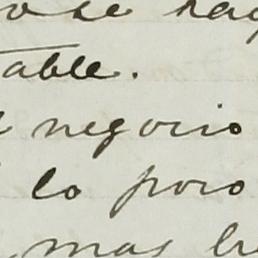 ose
able.
negocio
lo poco
mas